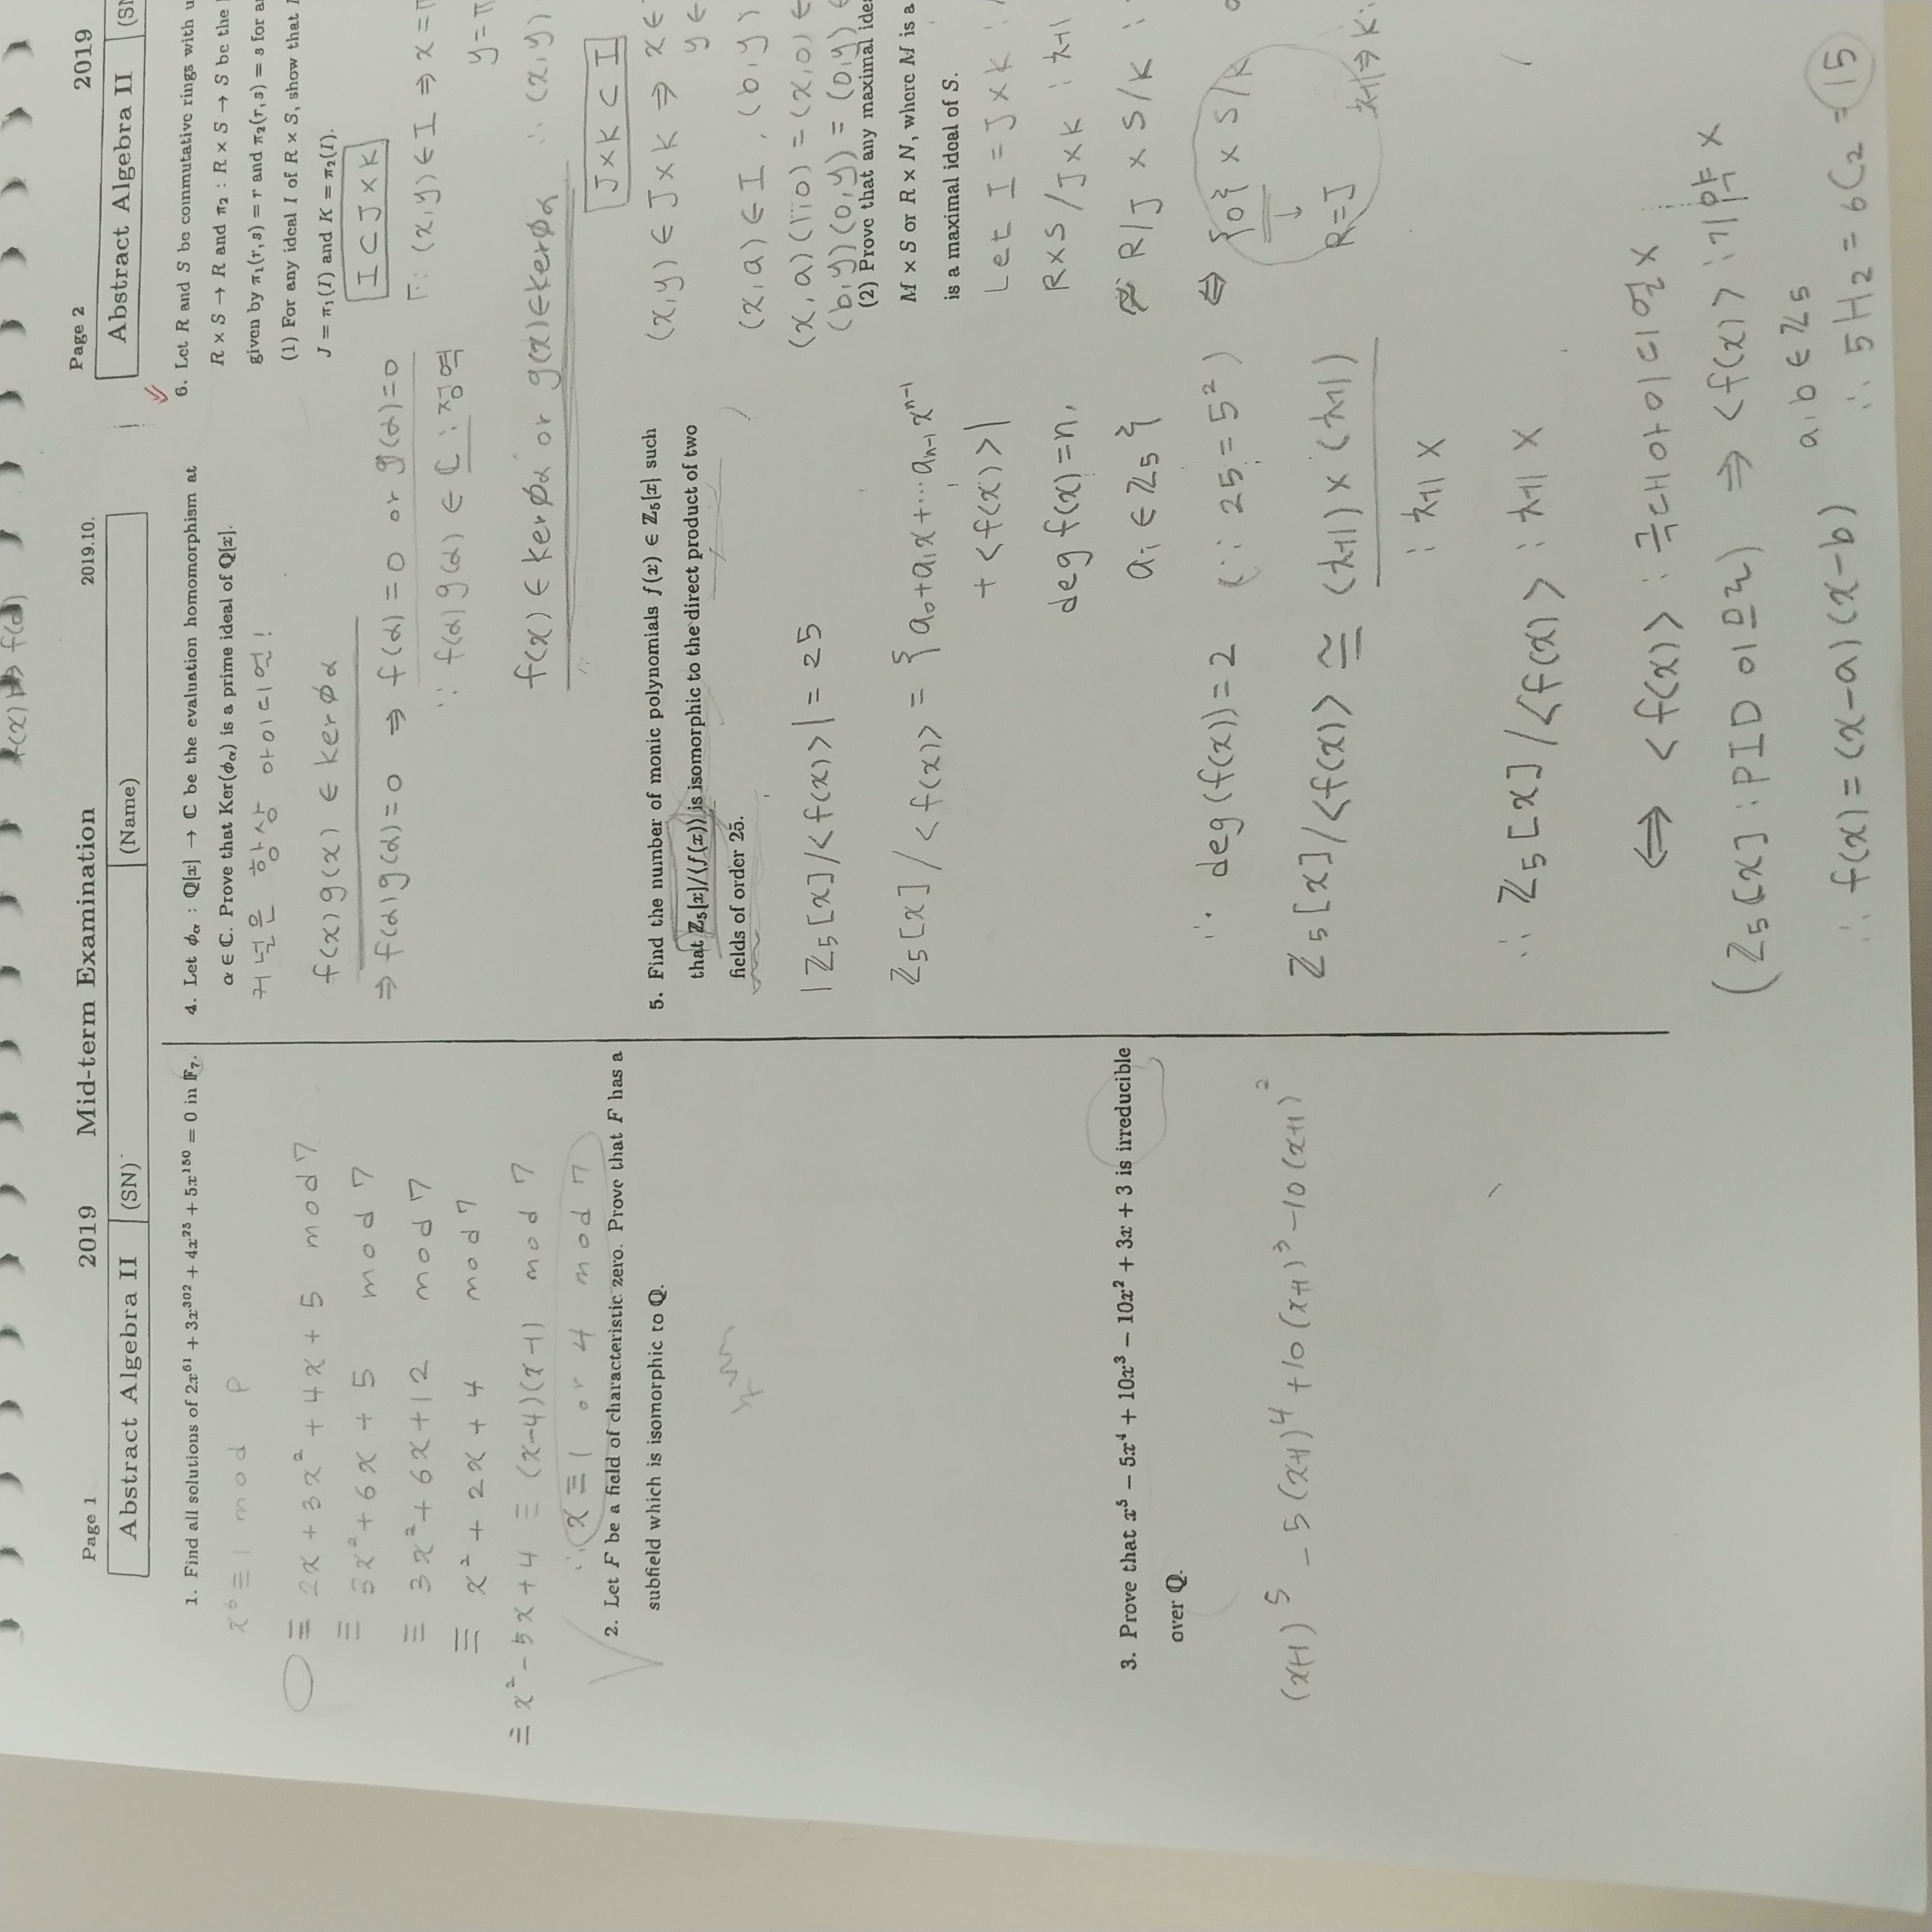 f(x) ↦ f(α)
Page 1 2019 Mid-term Examination 2019.10.
Abstract Algebra II (SN) (Name)
1. Find all solutions of 2x^61 + 3x^302 + 4x^25 + 5x^150 = 0 in F_7.
x^6 ≡ 1 mod p
≡ 2x + 3x^2 + 4x + 5 mod 7
≡ 3x^2 + 6x + 5 mod 7
≡ 3x^2 + 6x + 12 mod 7
≡ x^2 + 2x + 4 mod 7
≡ x^2 - 5x + 4 ≡ (x-4)(x-1) mod 7
∴ x ≡ 1 or 4 mod 7
2. Let F be a field of characteristic zero. Prove that F has a
subfield which is isomorphic to Q.
3. Prove that x^5 − 5x^4 + 10x^3 − 10x^2 + 3x + 3 is irreducible
over Q.
(x+1)^5 - 5(x+1)^4 + 10(x+1)^3 - 10(x+1)^2
4. Let ϕ_α : Q[x] → C be the evaluation homomorphism at
α ∈ C. Prove that Ker(ϕ_α) is a prime ideal of Q[x].
커널은 항상 아이디얼!
f(x)g(x) ∈ ker ϕα
⇒ f(α)g(α)=0 ⇒ f(α)=0 or g(α)=0
∵ f(α)g(α) ∈ C : 정역
f(x) ∈ ker ϕα or g(x) ∈ ker ϕα
5. Find the number of monic polynomials f(x) ∈ Z_5[x] such
that Z_5[x]/⟨f(x)⟩ is isomorphic to the direct product of two
fields of order 25.
|Z_5[x]/<f(x)>| = 25
Z_5[x]/<f(x)> = { a_0+a_1x+⋯a_{n-1}x^{n-1}
+ <f(x)> |
deg f(x)=n,
a_i ∈ Z_5 }
∴ deg(f(x))=2 (∵ 25=5^2)
Z_5[x]/<f(x)> ≅ (체) × (체)
: 체 X
∴ Z_5[x]/<f(x)> : 체 X
⇔ <f(x)> : 극대아이디얼 X
(Z_5[x] : PID 이므로) ⇒ <f(x)> : 기약 X
∴ f(x)=(x-a)(x-b) a,b ∈ Z_5
∴ 5H2 = 6C2 = 15
Page 2 2019
Abstract Algebra II
6. Let R and S be commutative rings with
R × S → R and π_2 : R × S → S be the
given by π_1(r, s) = r and π_2(r, s) = s for
(1) For any ideal I of R × S, show that
J = π_1(I) and K = π_2(I).
I ⊂ J×K
∵ (x,y) ∈ I ⇒ x = π
y = π
∴ (x,y)
J×K ⊂ I
(x,y) ∈ J×K ⇒ x ∈
y ∈
(x,a) ∈ I, (b,y)
(x,a)(1,0) = (x,0) ∈
(b,y)(0,y) = (0,y) ∈
(2) Prove that any maximal
M × S or R × N, where M is a
is a maximal ideal of S.
Let I = J×K :
R×S/J×K : 체
≈ R/J × S/K :
⇔ {0} × S/K
↓
R=J
체 ⇒ K: